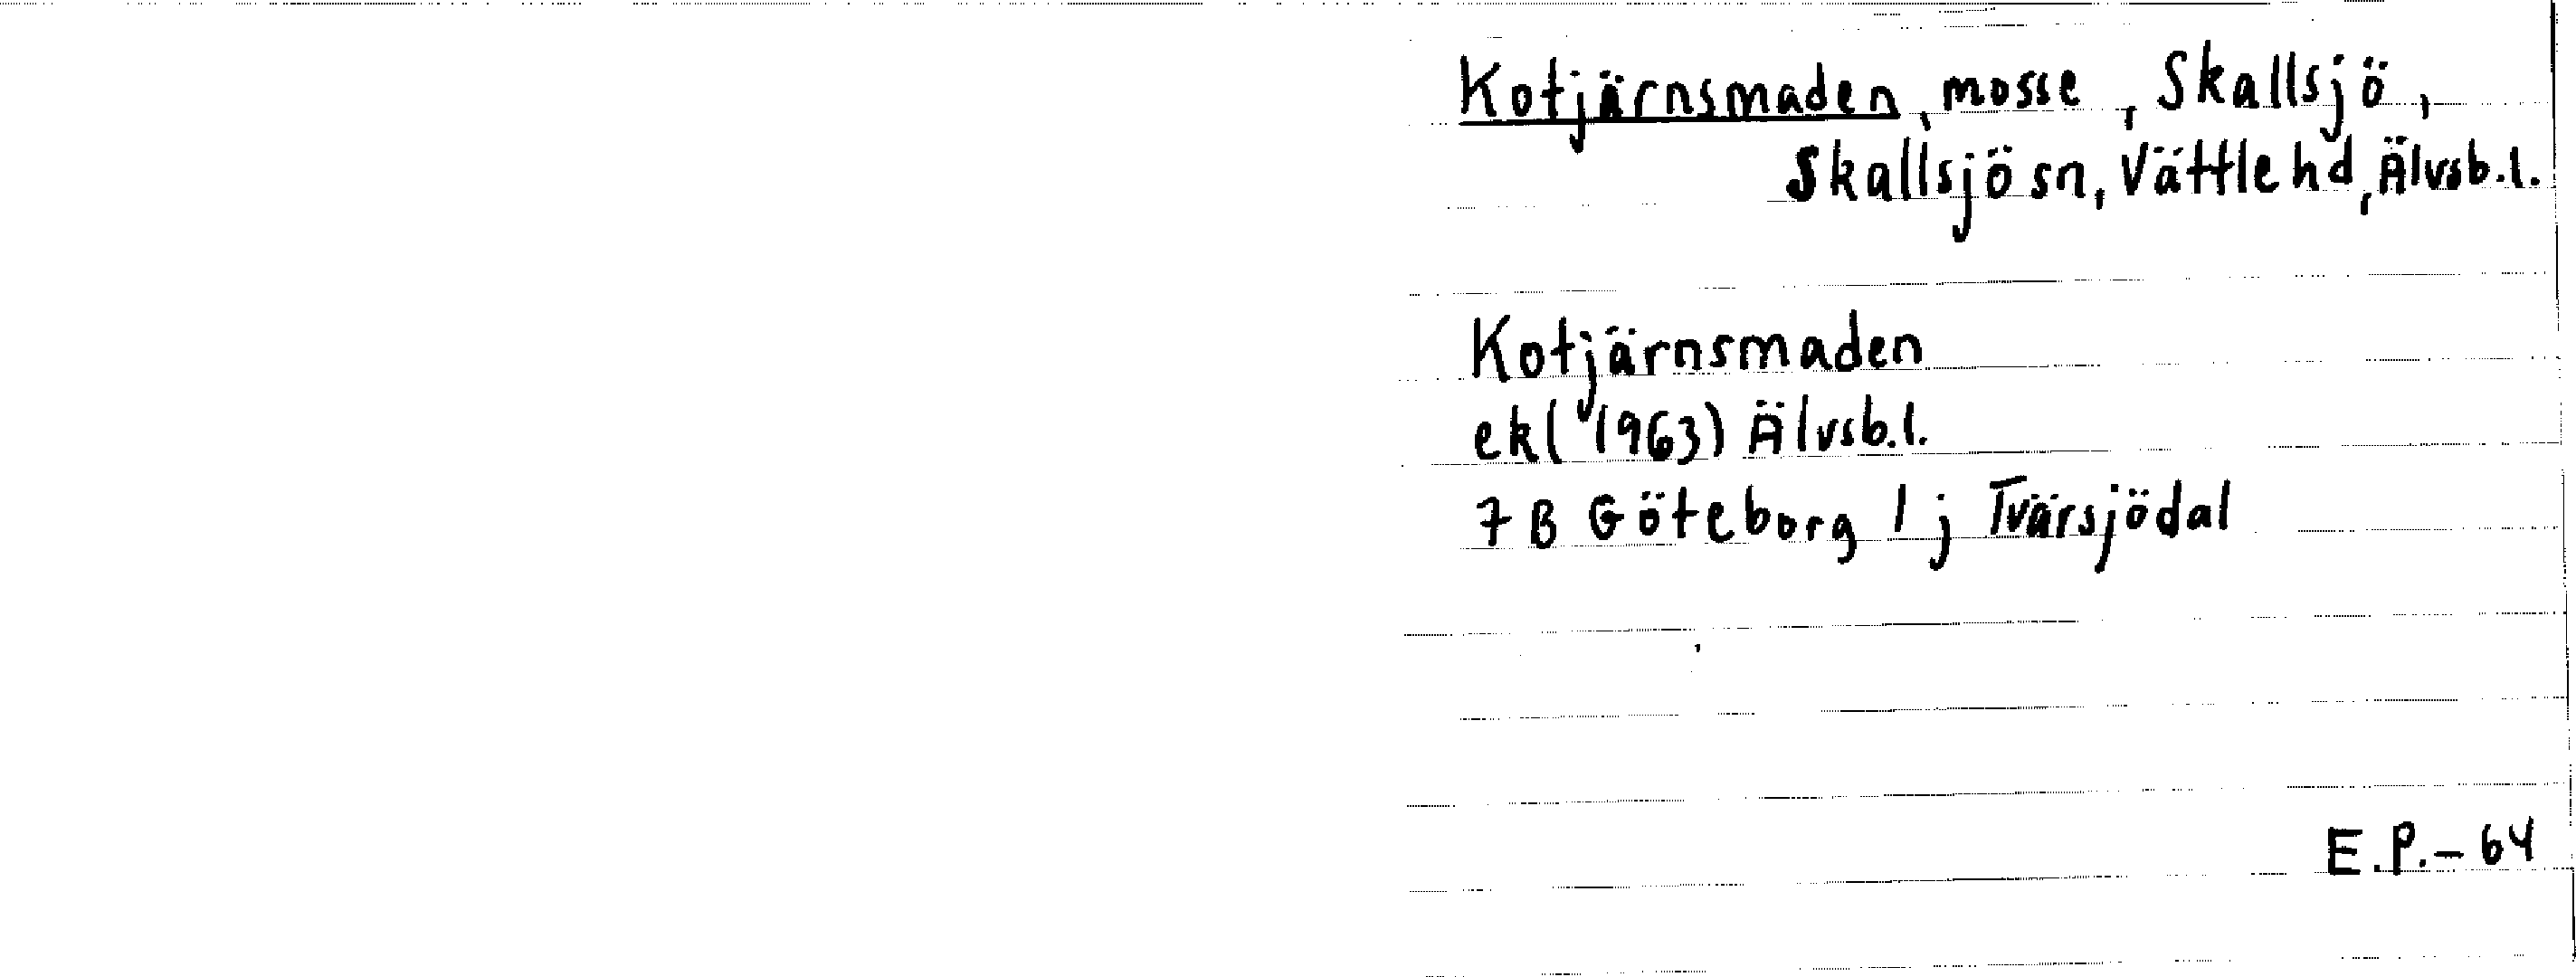 Kotjärnsmaden, mosse, Skallsjö,
Skallsjö sn, Vättle hd, Älvsb.l.
Kotjärnsmaden
ek (1963) Älvsb.l.
7 B Göteborg 1 j Tvärsjödal
E.P.-64